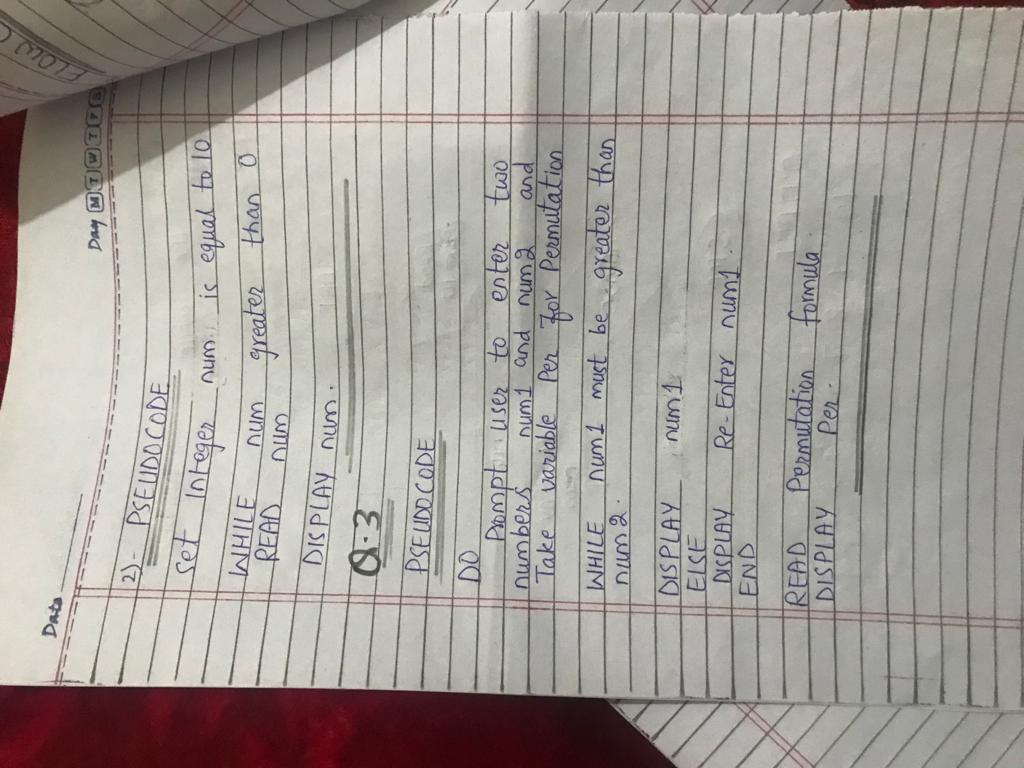 Date
Day M T W T F S
2)- PSEUDOCODE
Set Integer num is equal to 10
WHILE num greater than 0
READ num
DISPLAY num.
Q.3
PSEUDOCODE
DO
Pompt user to enter two
numbers num1 and num2 and
Take variable Per for Permutation
WHILE num1 must be greater than
num2.
DISPLAY num1
ELSE
DISPLAY Re-Enter num1.
END
READ Permutation formula
DISPLAY Per.
FLOW C